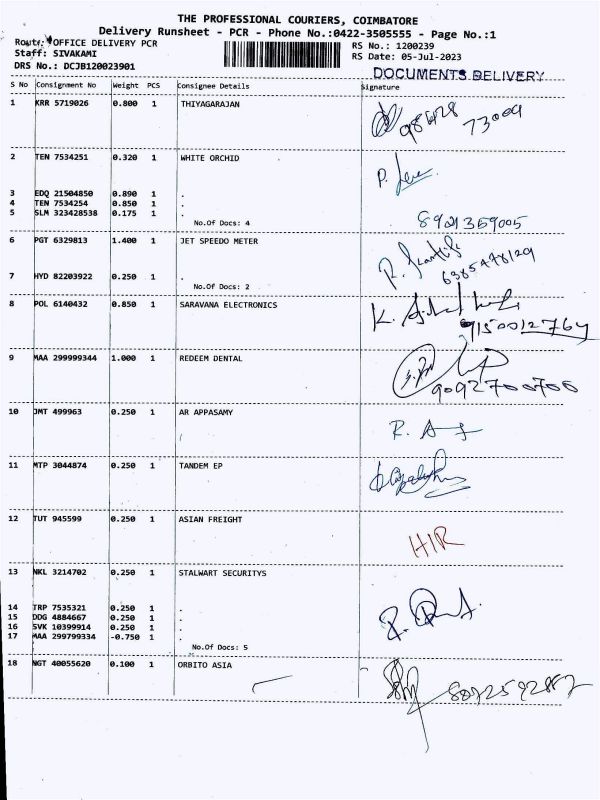 THE PROFESSIONAL COURIERS, COIMBATORE
Delivery Runsheet - PCR - Phone No.:0422-3505555 - Page No.:1
Route: OFFICE DELIVERY PCR RS No.: 1200239
Staff: SIVAKAMI RS Date: 05-Jul-2023
DRS No.: DCJB120023901 DOCUMENTS DELIVERY
S No Consignment No Weight PCS Consignee Details Signature
1 KRR 5719026 0.800 1 THIYAGARAJAN
98428 73009
2 TEN 7534251 0.320 1 WHITE ORCHID
3 EDQ 21504850 0.890 1 .
4 TEN 7534254 0.850 1 .
5 SLM 323428538 0.175 1 .
No.Of Docs: 4 8921359005
6 PGT 6329813 1.400 1 JET SPEEDO METER
7 HYD 82203922 0.250 1 .
6385478129
No.Of Docs: 2
8 POL 6140432 0.850 1 SARAVANA ELECTRONICS
9150012764
9 MAA 299999344 1.000 1 REDEEM DENTAL
9092700700
10 JMT 499963 0.250 1 AR APPASAMY
11 MTP 3044874 0.250 1 TANDEM EP
12 TUT 945599 0.250 1 ASIAN FREIGHT
HIR
13 NKL 3214702 0.250 1 STALWART SECURITYS
14 TRP 7535321 0.250 1 .
15 DDG 4884667 0.250 1 .
16 SVK 10399914 0.250 1 .
17 MAA 299799334 -0.750 1 .
No.Of Docs: 5
18 NGT 40055620 0.100 1 ORBITO ASIA